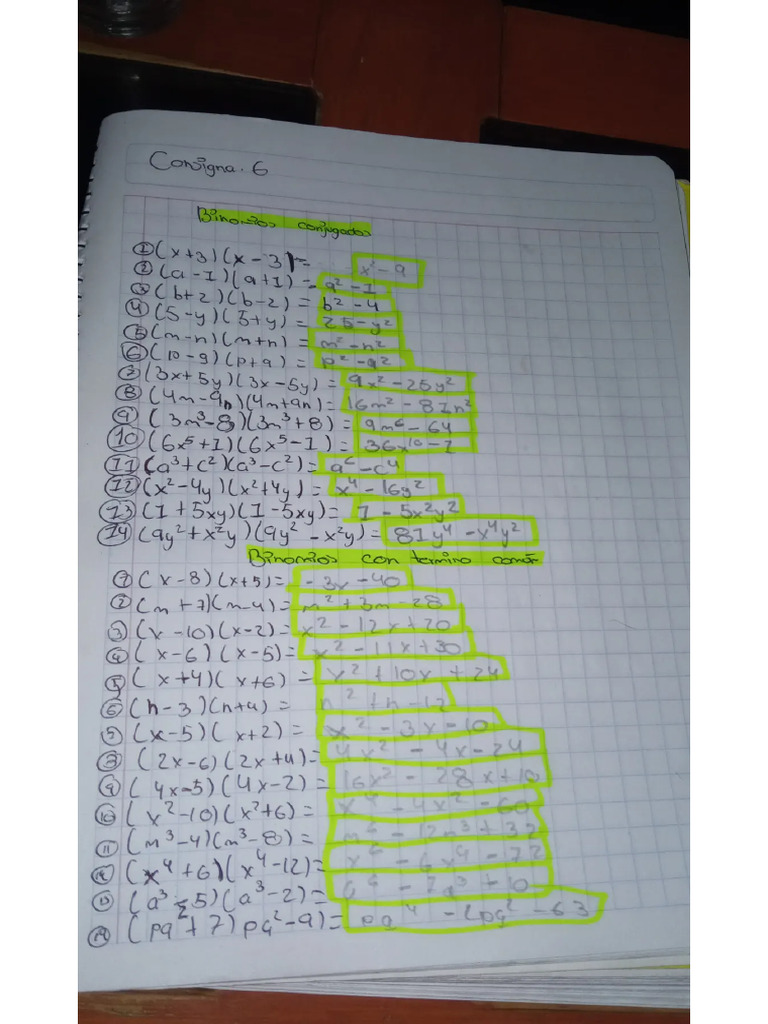 Consigna. 6
Binomios conjugados
① (x+3)(x-3)= x²-9
② (a-1)(a+1)= a²-1
③ (b+2)(b-2)= b²-4
④ (5-y)(5+y)= 25-y²
⑤ (m-n)(m+n)= m²-n²
⑥ (p-q)(p+q)= p²-q²
⑦ (3x+5y)(3x-5y)= 9x²-25y²
⑧ (4m-9n)(4m+9n)= 16m²-81n²
⑨ (3m³-8)(3m³+8)= 9m⁶-64
⑩ (6x⁵+1)(6x⁵-1)= 36x¹⁰-1
⑪ (a³+c²)(a³-c²)= a⁶-c⁴
⑫ (x²-4y)(x²+4y)= x⁴-16y²
⑬ (1+5xy)(1-5xy)= 1-5x²y²
⑭ (9y²+x²y)(9y²-x²y)= 81y⁴-x⁴y²
Binomios con termino común
① (x-8)(x+5)= -3x-40
② (m+7)(m-4)= m²+3m-28
③ (x-10)(x-2)= x²-12x+20
④ (x-6)(x-5)= x²-11x+30
⑤ (x+4)(x+6)= x²+10x+24
⑥ (n-3)(n+4)= n²+n-12
⑦ (x-5)(x+2)= x²-3x-10
⑧ (2x-6)(2x+4)= 4x²-4x-24
⑨ (4x-5)(4x-2)= 16x²-28x+10
⑩ (x²-10)(x²+6)= x⁴-4x²-60
⑪ (m³-4)(m³-8)= m⁶-12m³+32
⑫ (x⁴+6)(x⁴-12)= x⁶-6x⁴-72
⑬ (a³-5)(a³-2)= a⁶-7a³+10
⑭ (pq²+7)pq²-9)= pq⁴-2pq²-63